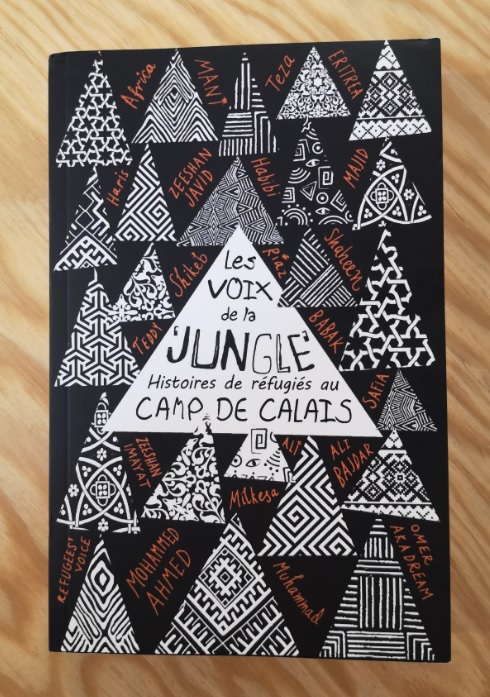 Africa
MANI
Teza
ERITREA
Haris
ZEESHAN
JAVID
Habibi
MAJID
Shikeb
Riaz
Shaheen
TEDDY
BABAK
Les
VOIX
de la
'JUNGLE'
Histoires de réfugiés au
CAMP DE CALAIS
SAFIA
ZEESHAN
IMAYAT
Milkesa
ALI
ALI
BAJDAR
REFUGEES'
VOICE
MOHAMMED
AHMED
Muhammad
OMER
AKA DREAM